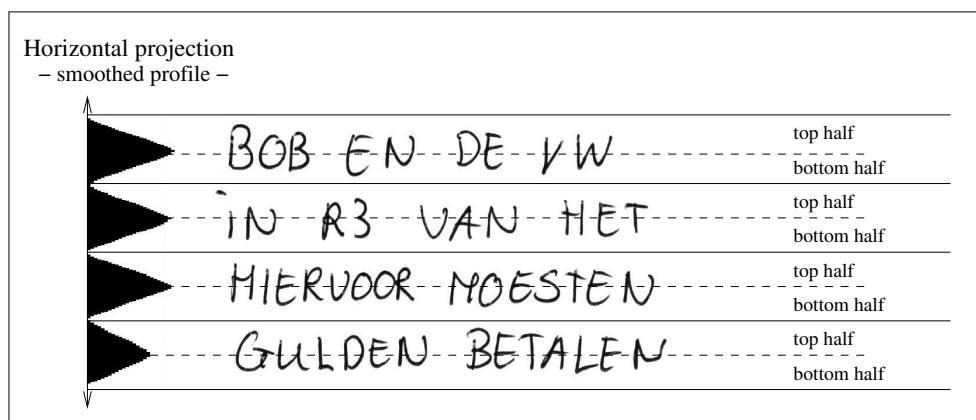 Horizontal projection
– smoothed profile –
BOB EN DE VW top half
bottom half
iN R3 VAN HET top half
bottom half
HIERVOOR MOESTEN top half
bottom half
GULDEN BETALEN top half
bottom half